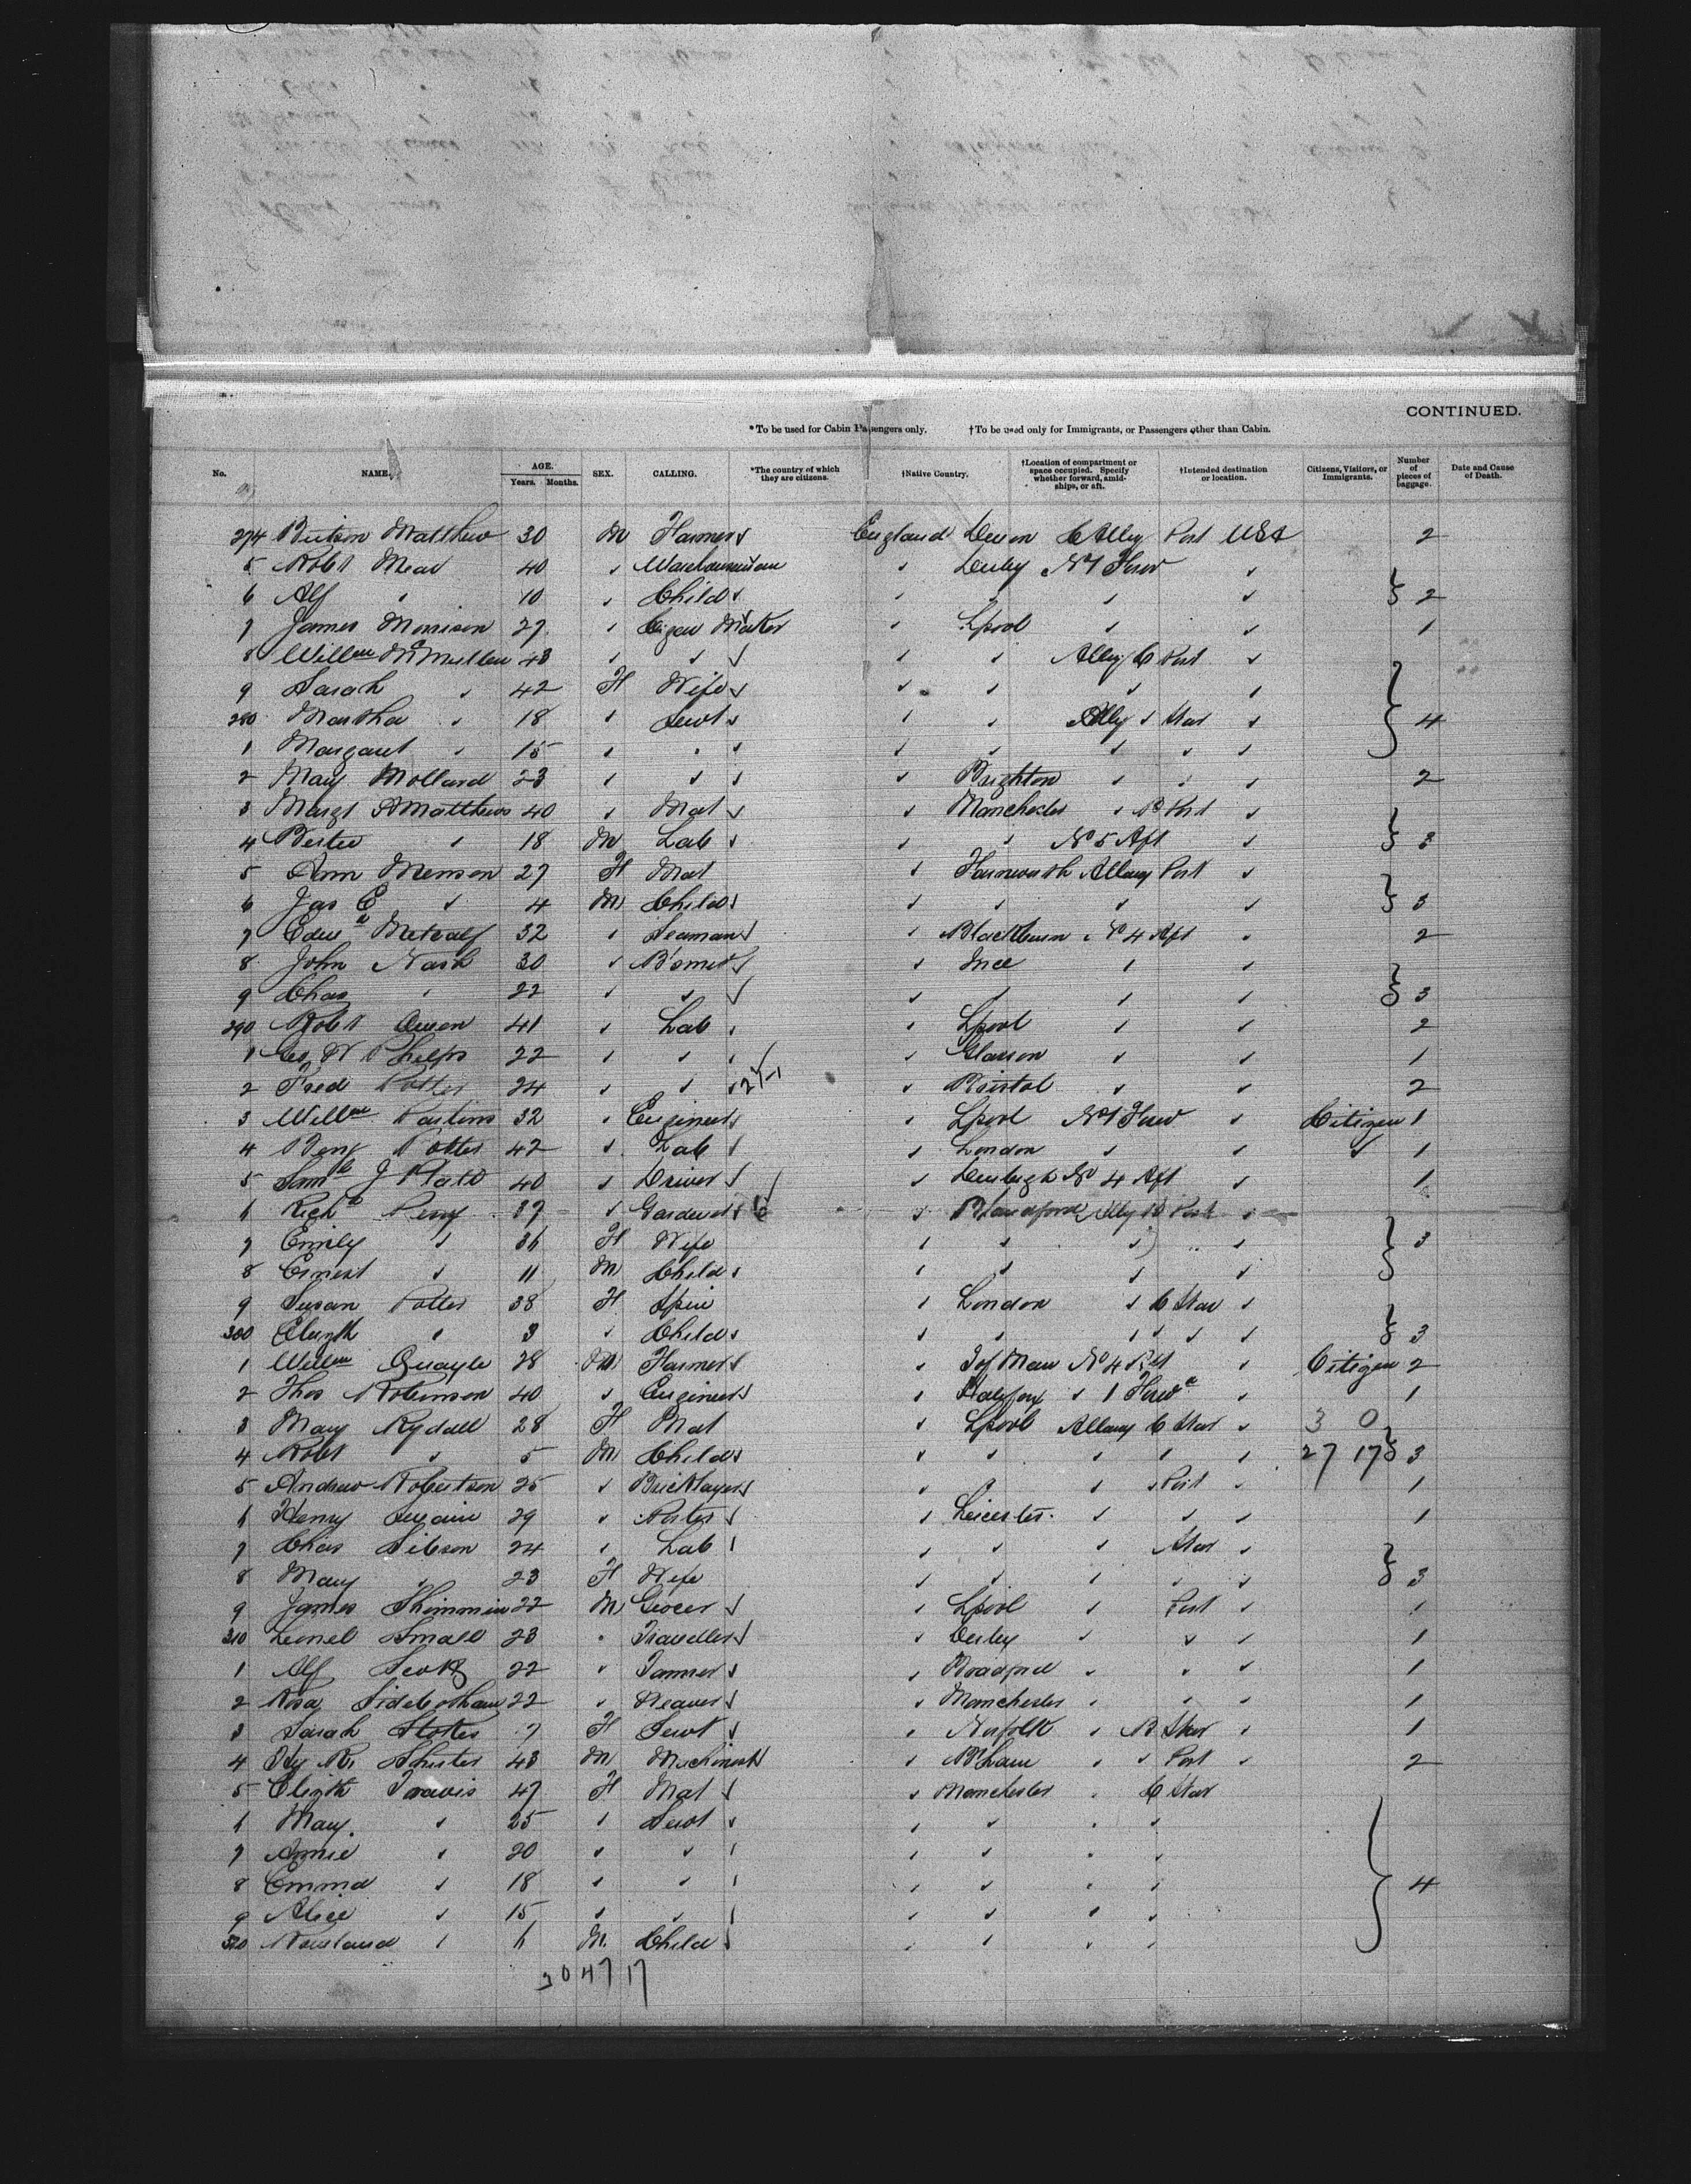 CONTINUED.
*To be used for Cabin Passengers only. †To be used only for Immigrants, or Passengers other than Cabin.
No. NAME. AGE. Years. Months. SEX. CALLING. *The country of which they are citizens. †Native Country. †Location of compartment or space occupied. Specify whether forward, amidships, or aft. †Intended destination or location. Citizens, Visitors, or Immigrants. Number of pieces of baggage. Date and Cause of Death.
274 Matthew 30 M Farmer England Devon C Alley Port USA 2
5 Robt Mear 40 " Warehouseman " Derby No 1 Forwd "
6 Alf " 10 " Child " " " " 2
7 James Morrison 27 " Cigar Maker " Lpool " " 1
8 Willm McMullen 43 " " " " Alley C Port "
9 Sarah " 42 F Wife " " " "
280 Martha " 18 " Servt " " Alley " Star " 4
1 Margaret " 15 " " " " " " "
2 Mary Mollard 23 " " " Brighton " " " 2
3 Margt A Matthews 40 " Mat " Manchester " B Port "
4 " 18 M Lab " " No 5 Aft " 3
5 Ann Menson 27 F Mat " Farnworth Allway Port "
6 Jas E " 4 M Child " " " " 3
7 Edwd Metcalf 32 " Seaman " Blackburn No 4 Aft " 2
8 John Nash 30 " " Ince " "
9 Chas " 22 " " " " " " 3
290 Robt Owen 41 " Lab " Lpool " " 2
1 Geo W Phelps 22 " " " " " 1
2 Fred Potter 24 " " " Bristol " " 2
3 Willm 32 " Engineer " Lpool No 1 Forwd " Citizen 1
4 Benj Potter 42 " Lab " London " " " 1
5 Saml J Plato 40 " Driver " Denbigh No 4 Aft " 1
6 Richd Perry 37 " Gardener " Blandford Alley B Port "
7 Emily " 36 F Wife " " " " 3
8 Ernest " 11 M Child " " " "
9 Susan Potter 38 F Spin " London " C Star "
300 Elizth " 3 " Child " " " " " " 3
1 Willm Quayle 28 M Farmer " I of Man No 4 Aft " Citizen 2
2 Thos Robinson 40 " Engineer " Halifax " 1 Forwd " 1
3 Mary Rydall 28 F Mat " Lpool Allway C Star " 3 0
4 Robt " 5 M Child " " " " " 27 17 3
5 Andrew Robertson 25 " Bricklayer " " " " Port " 1
6 Henry Swain 29 " Porter " Leicester " " " 1
7 Chas Sibson 24 " Lab " " " Star "
8 Mary " 23 F Wife " " " " " 3
9 James Shimmin 22 M Grocer " Lpool " Port " 1
310 Leonel Small 23 " Traveller " Derby " " " 1
1 Alf Scott 22 " Tanner " Bradford " " " 1
2 Rosa Sidebotham 22 " Weaver " Manchester " " " 1
3 Sarah Stokes 7 F Servt " Norfolk " B Star " 1
4 Hy 43 M Machinist " B'ham " " Port " 2
5 Elizth Travis 47 F Mat " Manchester " C Star
6 Mary " 25 " Servt " " " "
7 Annie " 20 " " " " " "
8 Emma " 18 " " " " " " 4
9 Alice " 15 " " " " " "
320 Rowland " 6 M Child " " " "
30 47 17